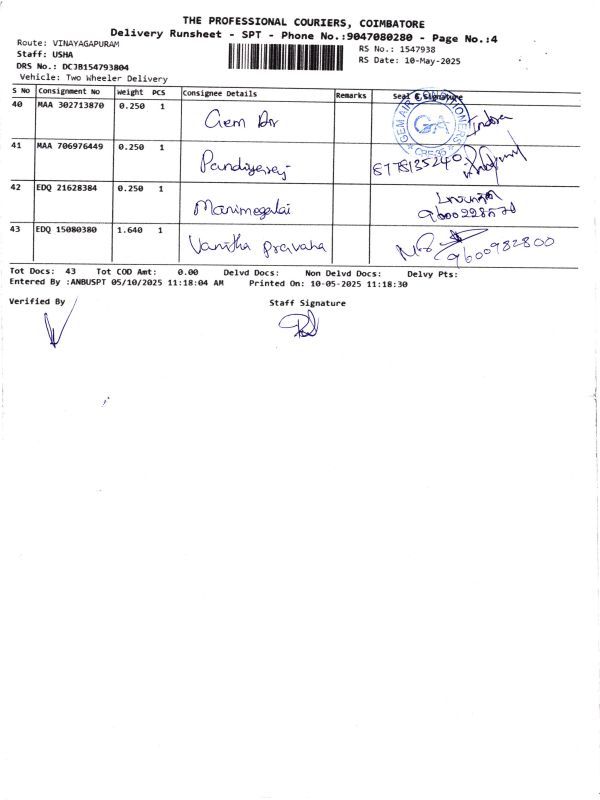 THE PROFESSIONAL COURIERS, COIMBATORE
Delivery Runsheet - SPT - Phone No.:9047080280 - Page No.:4
Route: VINAYAGAPURAM
RS No.: 1547938
Staff: USHA
RS Date: 10-May-2025
DRS No.: DC3B154793804
Vehicle: Two Wheeler Delivery
S No Consignment No Weight PCS Consignee Details Remarks Seal & Signature
40 MAA 302713870 0.250 1 Gem Air Indra
GEM AIR CONDITIONERS GA CBE-35
41 MAA 706976449 0.250 1 Pandiyaraj
42 EDQ 21628384 0.250 1 Manimegalai
43 EDQ 15080380 1.640 1 Vanitha pravaha 9600982800
Tot Docs: 43 Tot COD Amt: 0.00 Delvd Docs: Non Delvd Docs: Delvy Pts:
Entered By :ANBUSPT 05/10/2025 11:18:04 AM Printed On: 10-05-2025 11:18:30
Verified By Staff Signature